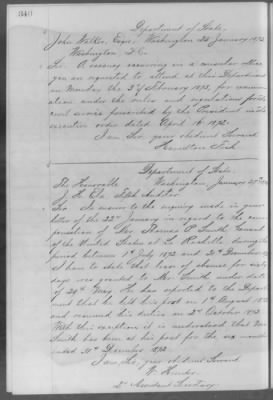 340
Department of State.
John Walker, Esquire Washington 28 January 1873
Washington, D.C.
Sir: A vacancy occurring in a consular office
you are requested to attend at this Department
on Monday the 3d of February 1873, for examin-
ation under the rules and regulations for the
civil service prescribed by the President in his
executive order dated April 16, 1872.
I am Sir, your obedient Servant
Hamilton Fish
Department of State.
The Honorable Washington, January 29th 1873
J. H. Ela Fifth Auditor
Sir: In answer to the inquiry made in your
letter of the 22nd January in regard to the com-
pensation of Mr. Thomas P. Smith Consul
of the United States at La Rochelle during the
period between 1st July 1872 and 31st December
I have to state that leave of absence for sixty
days was granted to Mr. Smith under date
of 29th May. He has reported to the Depart-
ment that he left his post on 1st August 1872
and resumed his duties on 2d October 1872.
With this exception it is understood that Mr.
Smith has been at his post for the six months
ended 31st December 1872.
I am, Sir, your obedient Servant
W. Hunter
2d Assistant Secretary